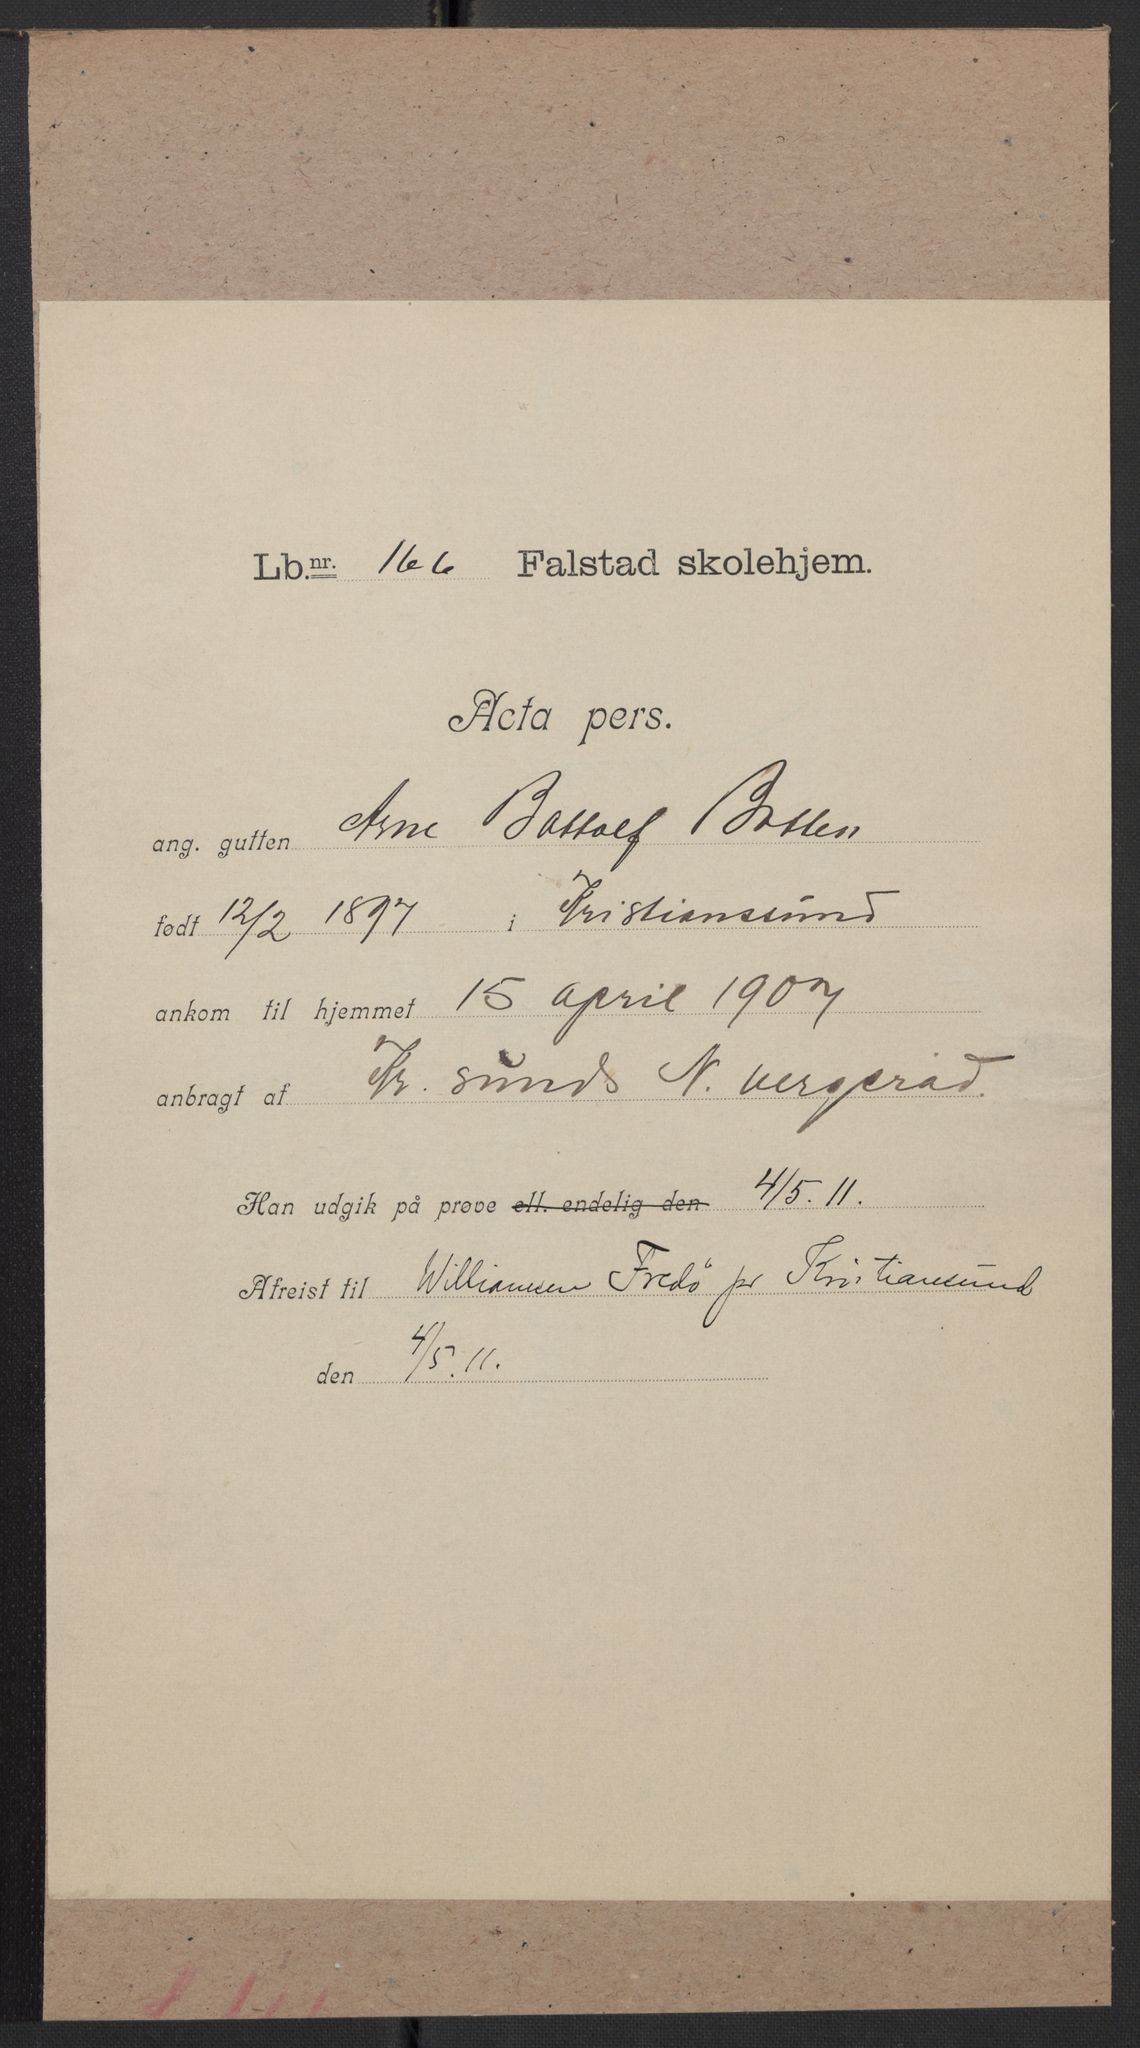 Lb.nr. 166 Falstad skolehjem.
Acta pers.
ang. gutten Arne Bottolf Botten
født 12/2 1897 i Kristianssund
ankom til hjemmet 15 april 1907
anbragt af Kr. sunds N. vergeraad.
Han udgik på prøve ell. endelig den 4/5. 11.
Afreist til Williamsen Fredö pr Kristiansund
den 4/5. 11.